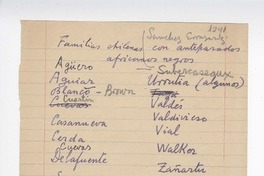 1291
(Sánchez Corajería)
Familias chilenas con antepasados
africanos negros
Subercaseaux
Agüero
Aguiar
Urrutia (algunos)
Blanco - Brown
Cuartin
Valdés
Casanueva
Valdivieso
Cerda
Vial
Cuevas
Walker
Delafuente
Zañartu